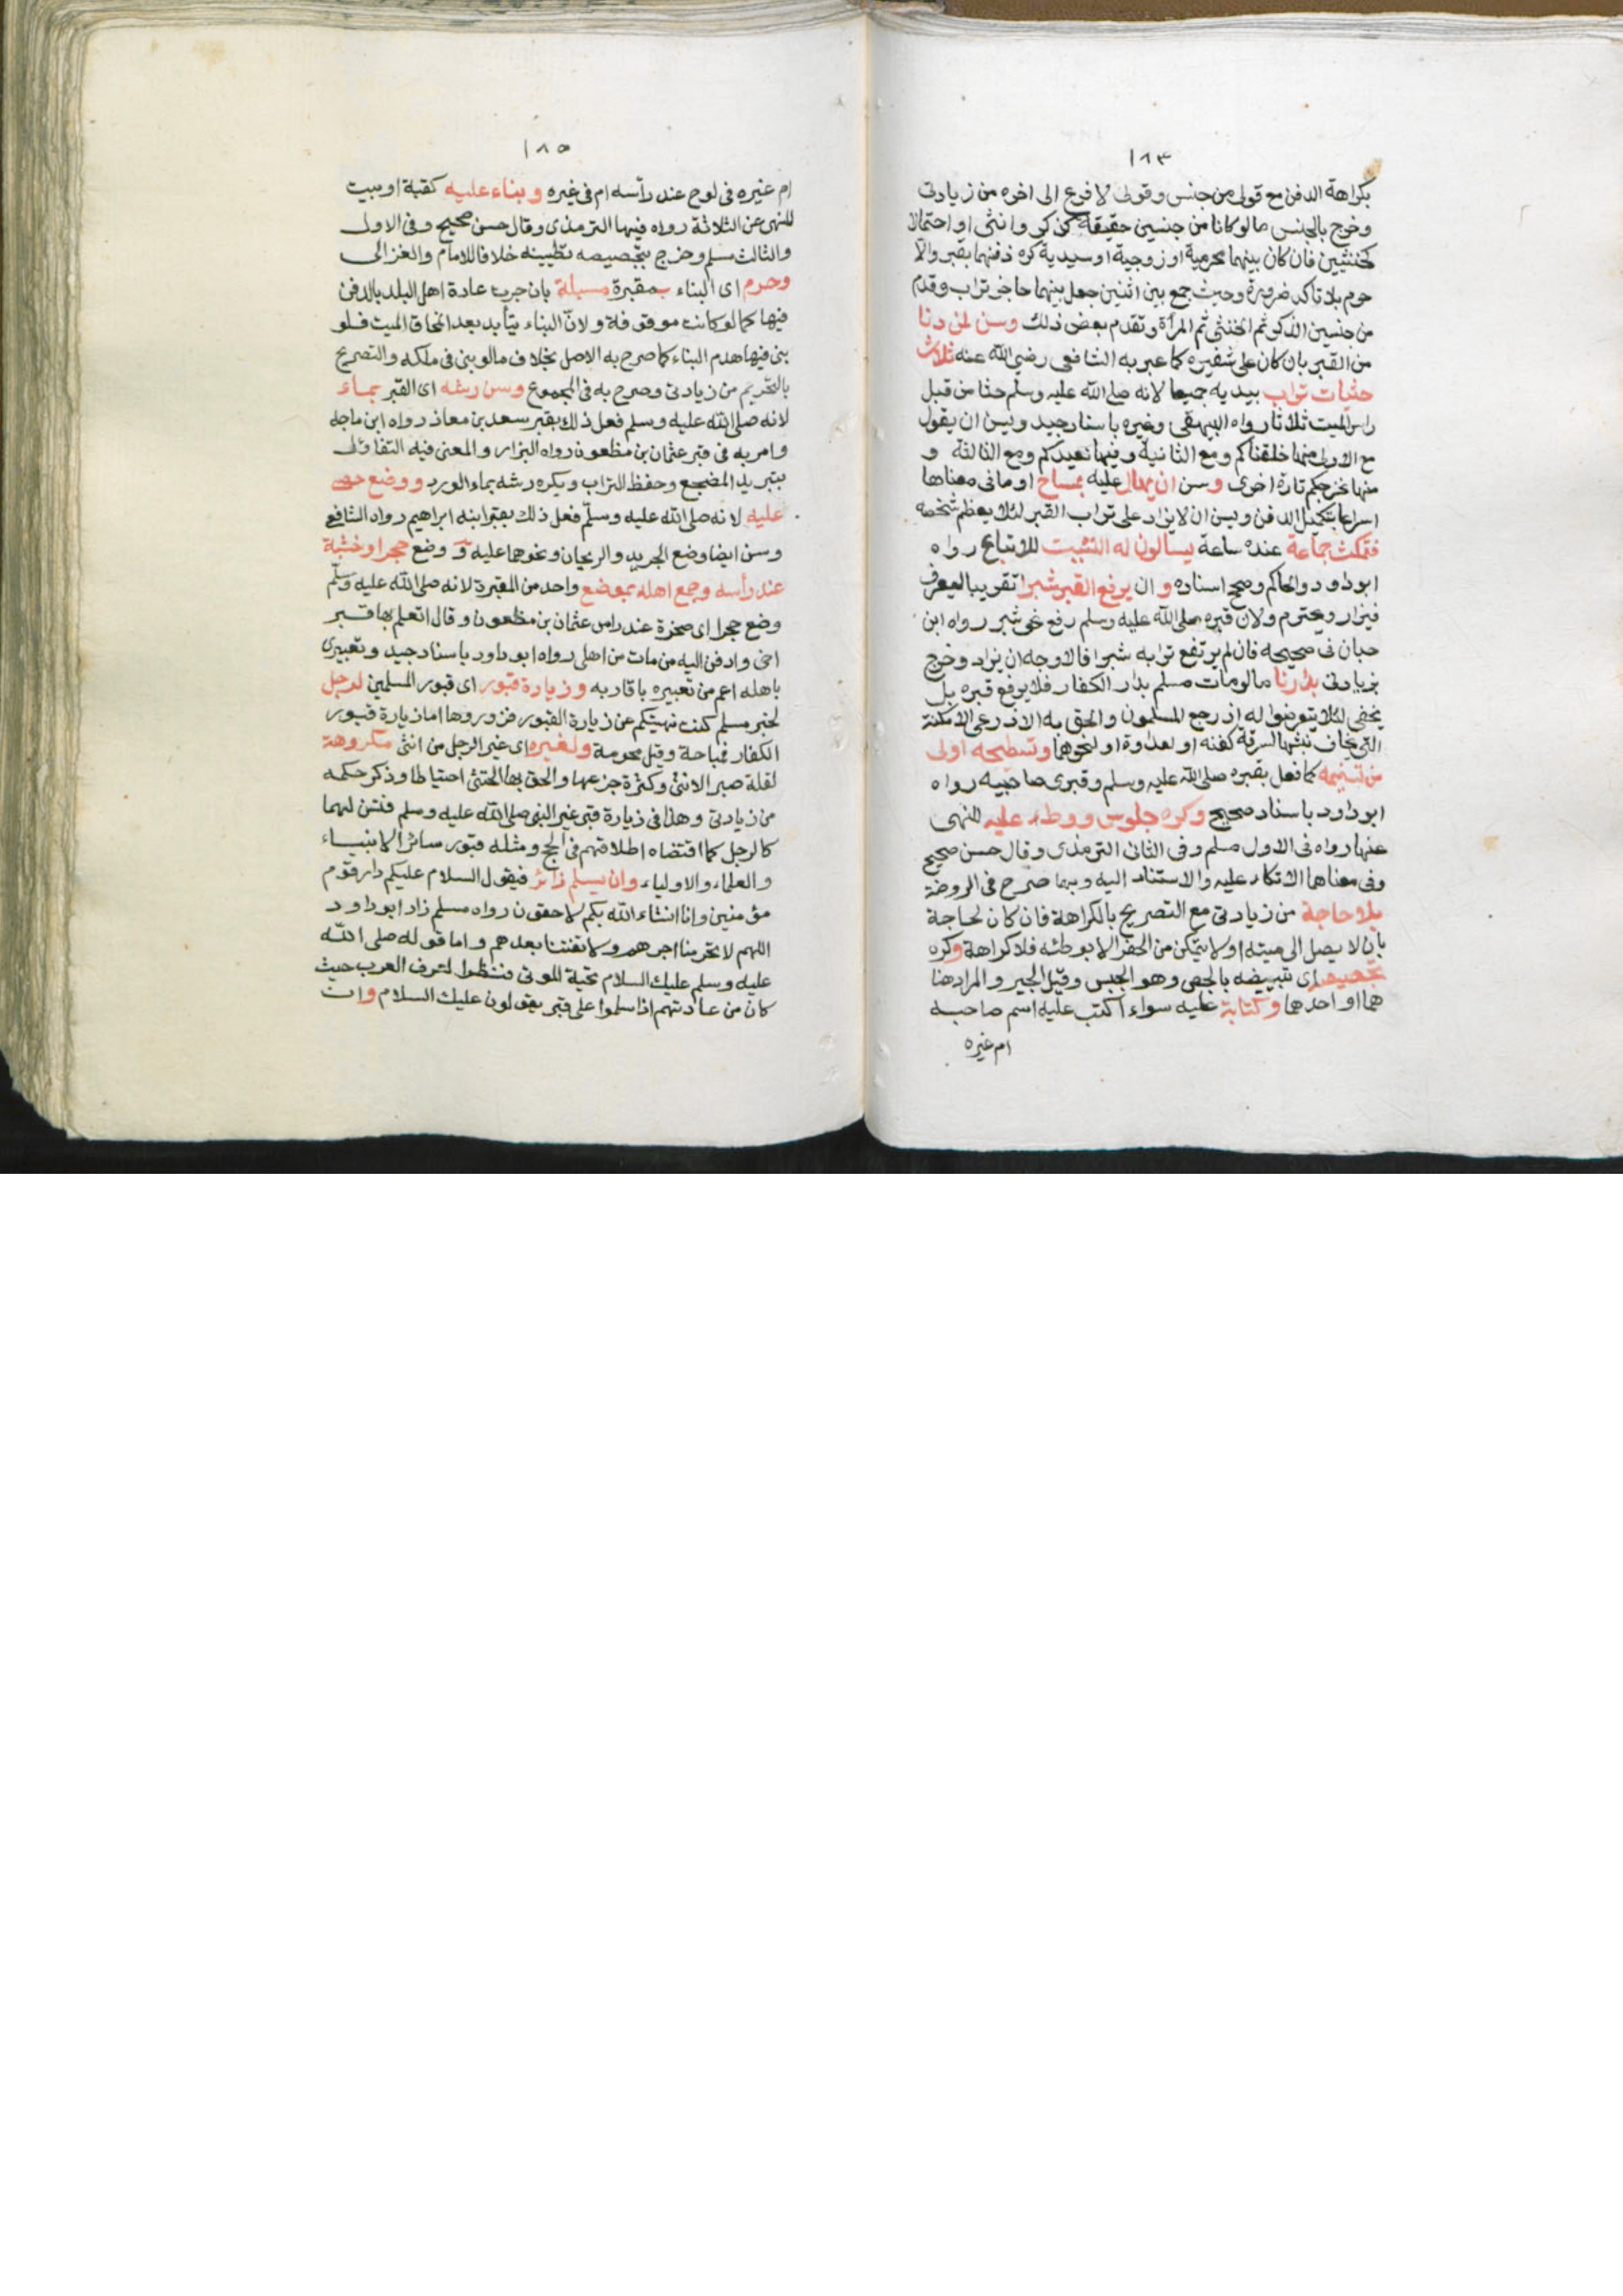 ١٨٣
بكراهة الدفن مع قولى من جنس وقولى لا فرع الى اخره من زيادتى
وخرج بالجنس مالو كانا من جنسين حقيقة كذكر وانثى او احتمالا
كخنثيين فان كان بينهما محرمية او زوجية او سيدية كره دفنهما بقبر والا
حرم بلا تاكد ضرورة وحيث جمع بين اثنين جعل بينهما حاجز تراب وقدم
من جنسين الذكر ثم الخنثى ثم المرأة وتقدم بعض ذلك وسن لمن دنا
من القبر بان كان على شفيره كما عبر به الشافعى رضي الله عنه ثلاث
حثيات تراب بيديه جميعا لانه صلى الله عليه وسلم حثا من قبل
راس الميت ثلاثا رواه البيهقى وغيره باسناد جيد ويسن ان يقول
مع الاولى منها خلقناكم ومع الثانية وفيها نعيدكم ومع الثالثة و
منها نخرجكم تارة اخرى وسن ان يهال عليه بمساح او مافى معناها
اسراعا بتكميل الدفن ويسن ان لا يزاد على تراب القبر لئلا يعظم شخصه
فتمكث جماعة عنده ساعة يسالون له التثبيت للاتباع رواه
ابو داود والحاكم وصحح اسناده وان يرفع القبر شبرا تقريبا ليعرف
فيزار ويحترم ولان قبره صلى الله عليه وسلم رفع نحو شبر رواه ابن
حبان فى صحيحه فان لم يرتفع ترابه شبرا فالاوجه ان يزاد وخرج
بزيادتى بدارنا مالو مات مسلم بدار الكفار فلا يرفع قبره بل
يخفى لئلا يتعرضوا له اذ رجع المسلمون والحق به الاذرعى الامكنة
التى يخاف نبشها لسرقة كفنه او لعداوة او لنحوهما وتسطيحه اولى
من تسنيمه كما فعل بقبره صلى الله عليه وسلم وقبرى صاحبيه رواه
ابو داود باسناد صحيح وكره جلوس ووطء عليه للنهى
عنها رواه فى الاول مسلم وفى الثانى الترمذى وقال حسن صحيح
وفى معناهما الاتكاء عليه والاستناد اليه وبهما صرح فى الروضة
بلا حاجة من زيادتى مع التصريح بالكراهة فان كان لحاجة
بان لا يصل الى ميته او لا يتمكن من الحفر الا بوطئه فلا كراهة وكره
تجصيصه اى تبييضه بالجص وهو الجبس وقيل الجير والمراد هنا
هما او احدهما وكتابة عليه سواء اكتب عليه اسم صاحبه
ام غيره
١٨٥
ام غيره فى لوح عند رأسه ام فى غيره وبناء عليه كقبة او بيت
للنهى عن الثلاثة رواه فيها الترمذى وقال حسن صحيح وفى الاول
والثالث مسلم وخرج بتجصيصه تطيينه خلافا للامام والغزالى
وحرم اى البناء بمقبرة مسبلة بان جرت عادة اهل البلد بالدفن
فيها كما لو كانت موقوفة ولانّ البناء يتأبد بعد انمحاق الميت فلو
بنى فيها هدم البناء كما صرح به الاصل بخلاف مالو بنى فى ملكه والتصريح
بالتحريم من زيادتى وصرح به فى المجموع وسن رشه اى القبر بماء
لانه صلى الله عليه وسلم فعل ذلك بقبر سعد بن معاذ رواه ابن ماجه
وامر به فى قبر عثمان بن مظعون رواه البزار والمعنى فيه التفاؤل
بتبريد المضجع وحفظ التراب ويكره رشه بماء الورد ووضع حصى
عليه لانه صلى الله عليه وسلّم فعل ذلك بقبر ابنه ابراهيم رواه الشافعى
وسن ايضا وضع الجريد والريحان ونحوهما عليه وَ وضع حجر او خشبة
عند رأسه وجمع اهله بموضع واحد من المقبرة لانه صلى الله عليه وسلّم
وضع حجرا اى صخرة عند راس عثمان بن مظعون وقال اتعلم بها قبر
اخى وادفن اليه من مات من اهلى رواه ابو داود باسناد جيد وتعبيرى
باهله اعم من تعبيره باقاربه وزيارة قبور اى قبور المسلمين لرجل
لخبر مسلم كنت نهيتكم عن زيارة القبور فزوروها اما زيارة قبور
الكفار فمباحة وقيل محرمة ولغيره اى غير الرجل من انثى مكروهة
لقلة صبر الانثى وكثرة جزعها والحق بها الخنثى احتياطا وذكر حكمه
من زيادتى وهذا فى زيارة قبر غير النبى صلى الله عليه وسلم فتسن لهما
كالرجل كما اقتضاه اطلاقهم فى الحج ومثله قبور سائر الانبياء
والعلماء والاولياء وان يسلم زائر فيقول السلام عليكم دار قوم
مؤمنين وانا انشاء الله بكم لاحقون رواه مسلم زاد ابو داود
اللهم لا تحرمنا اجرهم ولا تفتنا بعدهم واما قوله صلى الله
عليه وسلم عليك السلام تحية الموتى فنظرا لعرف العرب حيث
كان من عادتهم اذا سلموا على قبر يقولون عليك السلام وان